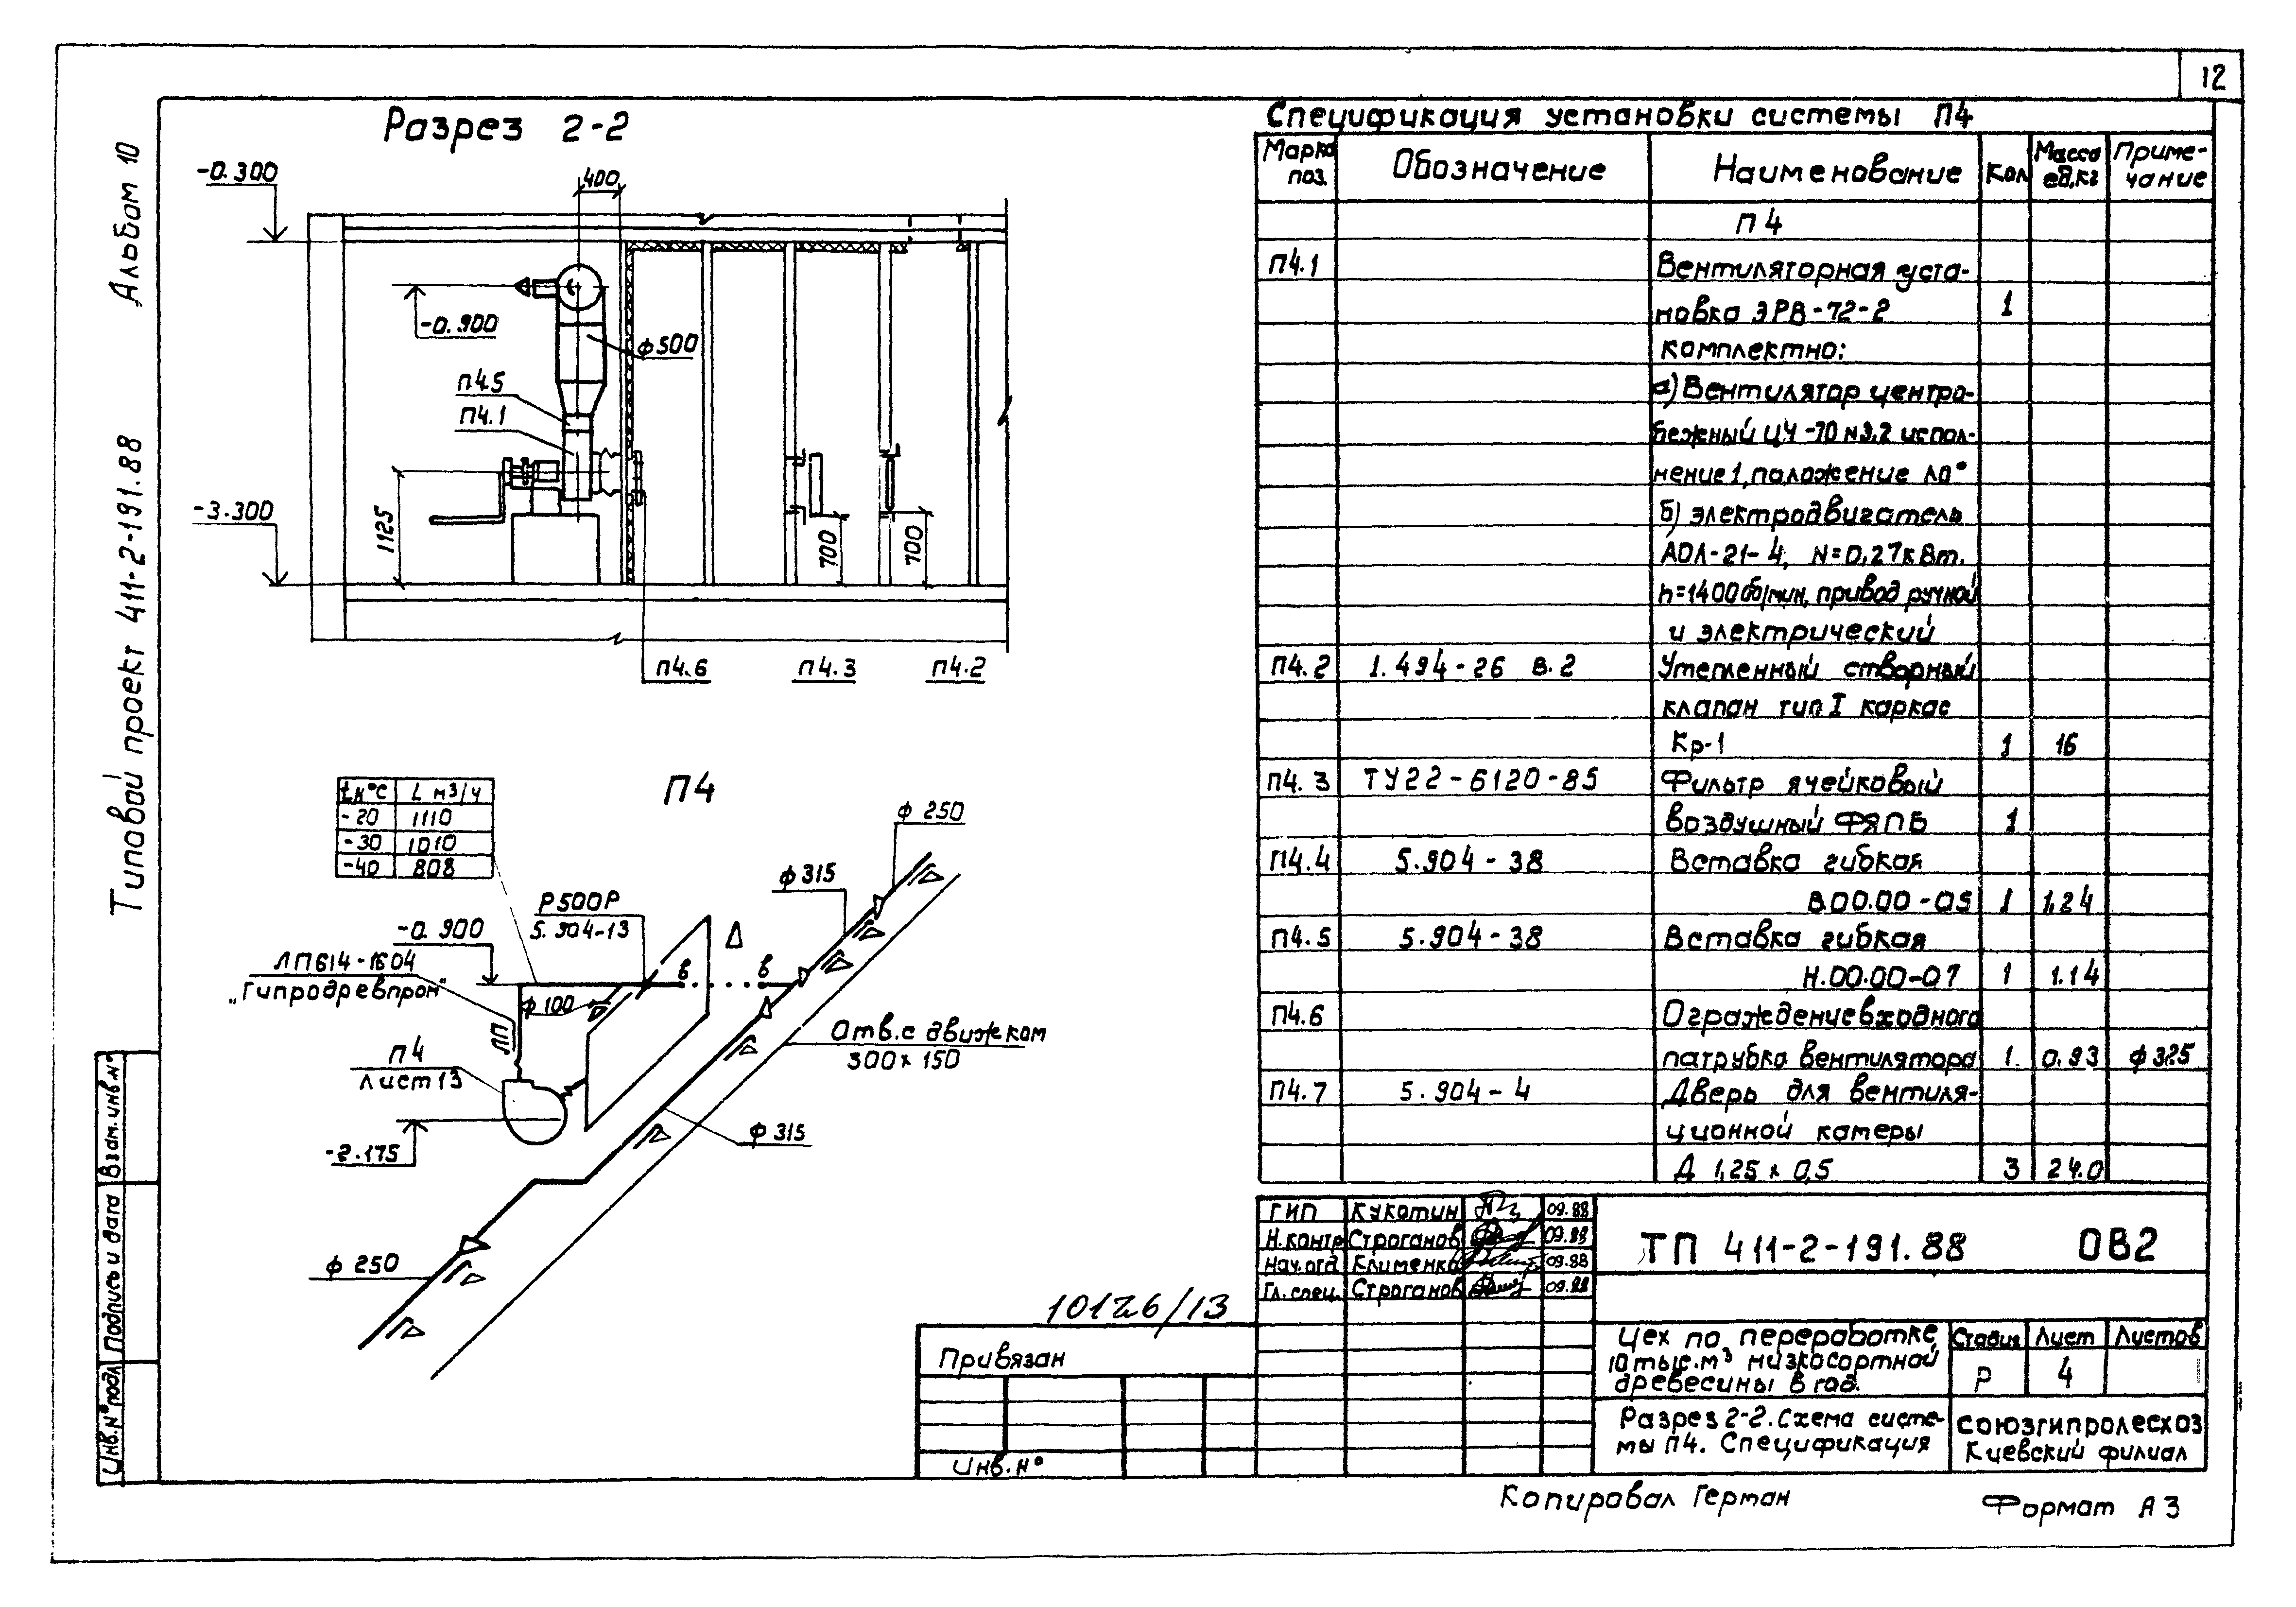 12
Альбом 10
Типовой проект 411-2-191.88
Взам. инв.№
Подпись и дата
Инв.№ подл
Разрез 2-2
-0.300
400
-0.900
ф500
П4.5
П4.1
-3.300
1125
700
700
П4.6
П4.3
П4.2
П4
tн°С L м3/ч
-20 1110
-30 1010
-40 808
ф 250
ф 315
Р500Р
5.904-13
-0.900
ЛП614-1604
„Гипродревпром"
в в
ф 100
ЛП
П4
Лист 13
Отв.с движком
300х150
-2.175
ф 315
ф 250
Спецификация установки системы П4
Марка поз. Обозначение Наименование Кол Масса ед,кг Приме-чание
П4
П4.1 Вентиляторная уста-
новка ЭРВ-72-2 1
комплектно:
а) Вентилятор центро-
бежный Ц4-70 №3,2 испол-
нение 1, положение Л0°
б) электродвигатель
АОЛ-21-4, N=0,27кВт.
n=1400об/мин, привод ручной
и электрический
П4.2 1.494-26 в.2 Утепленный створный
клапан тип I каркас
Кр-1 1 16
П4.3 ТУ22-6120-85 Фильтр ячейковый
воздушный ФЯПБ 1
П4.4 5.904-38 Вставка гибкая
В.00.00-05 1 1,24
П4.5 5.904-38 Вставка гибкая
Н.00.00-07 1 1.14
П4.6 Ограждение входного
патрубка вентилятора 1. 0,93 ф325
П4.7 5.904-4 Дверь для вентиля-
ционной камеры
Д 1,25 х 0,5 3 24.0
ГИП Кукотин 09.88
Н.контр Строганов 09.88
Нач.отд Клименко 09.88
Гл. спец. Строганов 09.88
ТП 411-2-191.88 ОВ2
Цех по переработке
10 тыс.м3 низкосортной
древесины в год.
Стадия Лист Листов
Р 4
Разрез 2-2. Схема систе-
мы П4. Спецификация
СОЮЗГИПРОЛЕСХОЗ
Киевский филиал
10126/13
Привязан
Инв.№
Копировал Герман
Формат А3